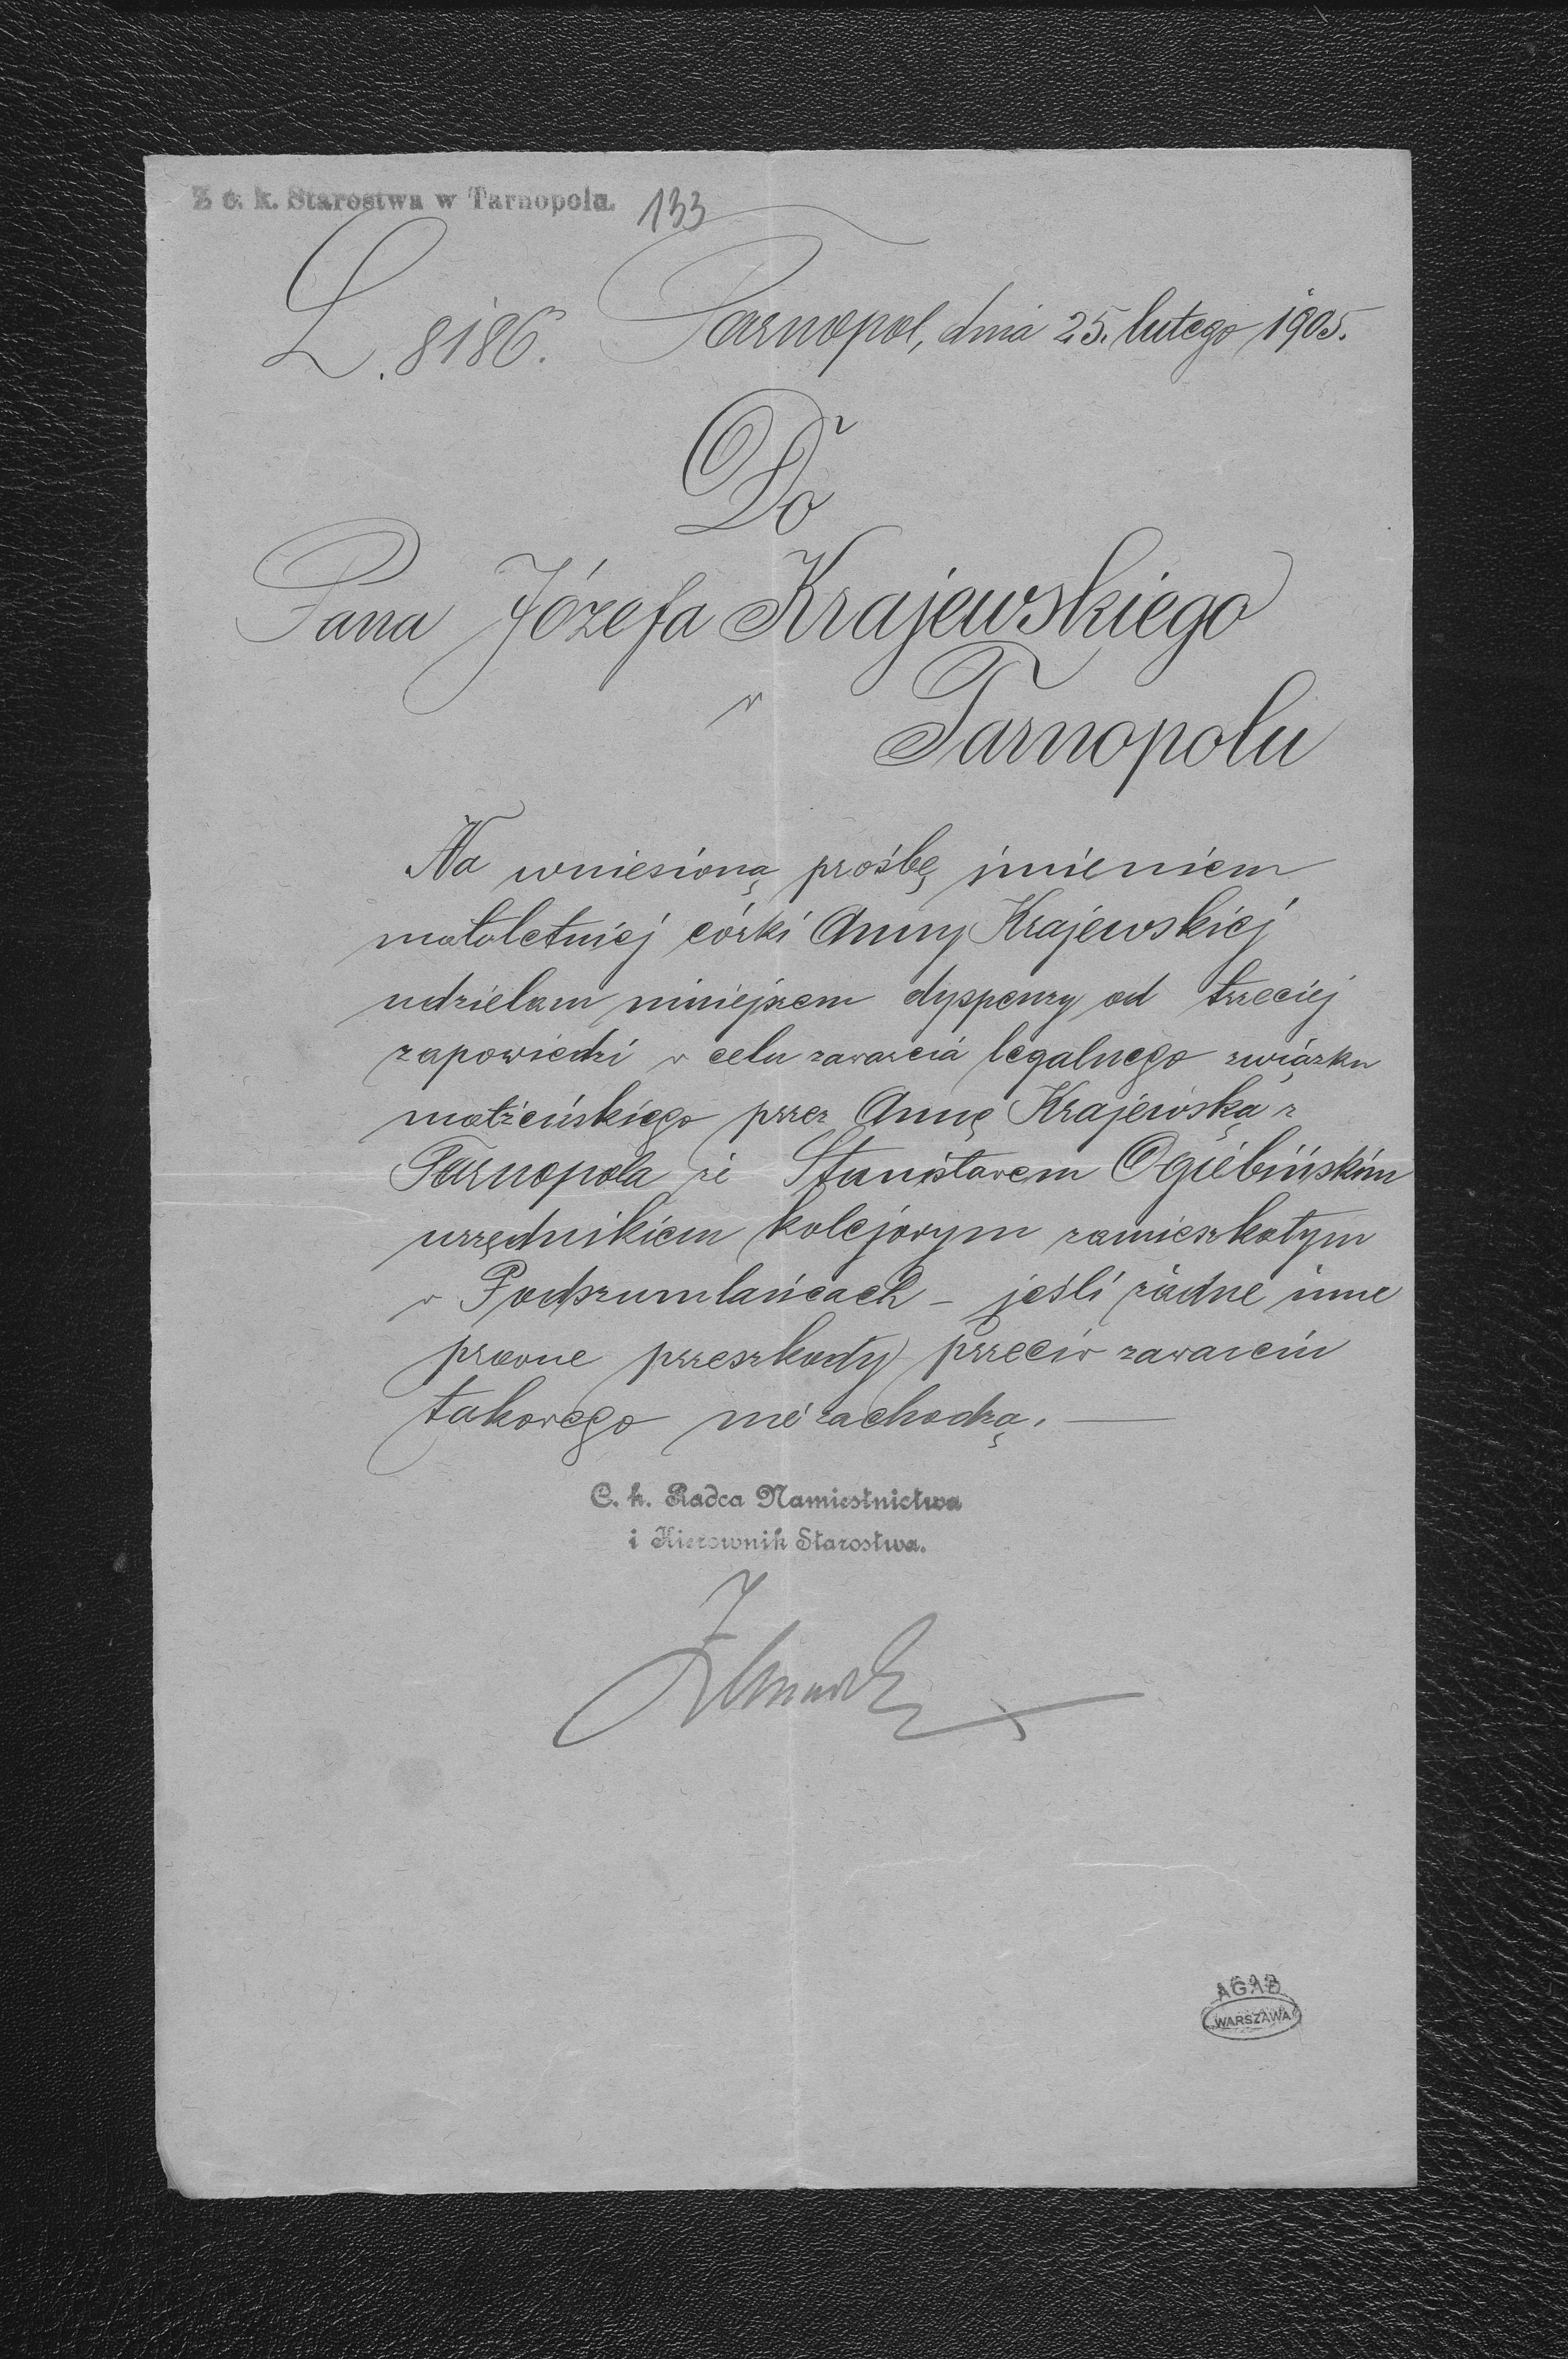 Z c. k. Starostwa w Tarnopolu. 133
L. 8186. Tarnopol, dnia 25. lutego 1905.
Do
Pana Józefa Krajewskiego
w
Tarnopolu
Na wniesioną prośbę imieniem
małoletniej córki Anny Krajewskiej
udzielam niniejszem dyspenzy od trzeciej
zapowiedzi w celu zawarcia legalnego związku
małżeńskiego przez Annę Krajewską z
Tarnopola ze Stanisławem Ogiebińskim
urzędnikiem kolejowym zamieszkałym
w Podszumlańcach – jeśli żadne inne
prawne przeszkody przeciw zawarciu
takowego nie zachodzą. —
C. k. Radca Namiestnictwa
i Kierownik Starostwa.
AGAD
WARSZAWA